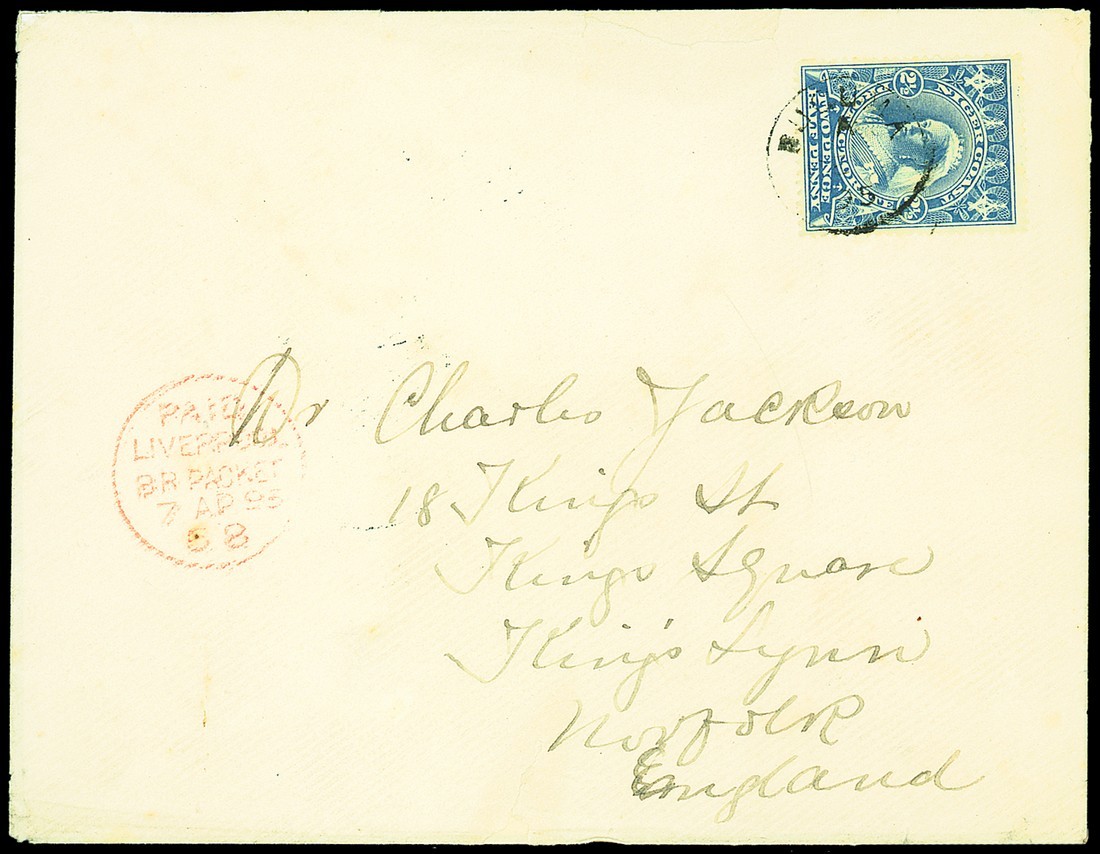 NIGER COAST
PROTECTORATE
2½ 2½
TWO PENCE
HALF PENNY
PAID
LIVERPOOL
BR PACKET
7 AP 95
5 8
Dr Charles Jackson
18 King's St
Kings Square
King's Lynn
Norfolk
England